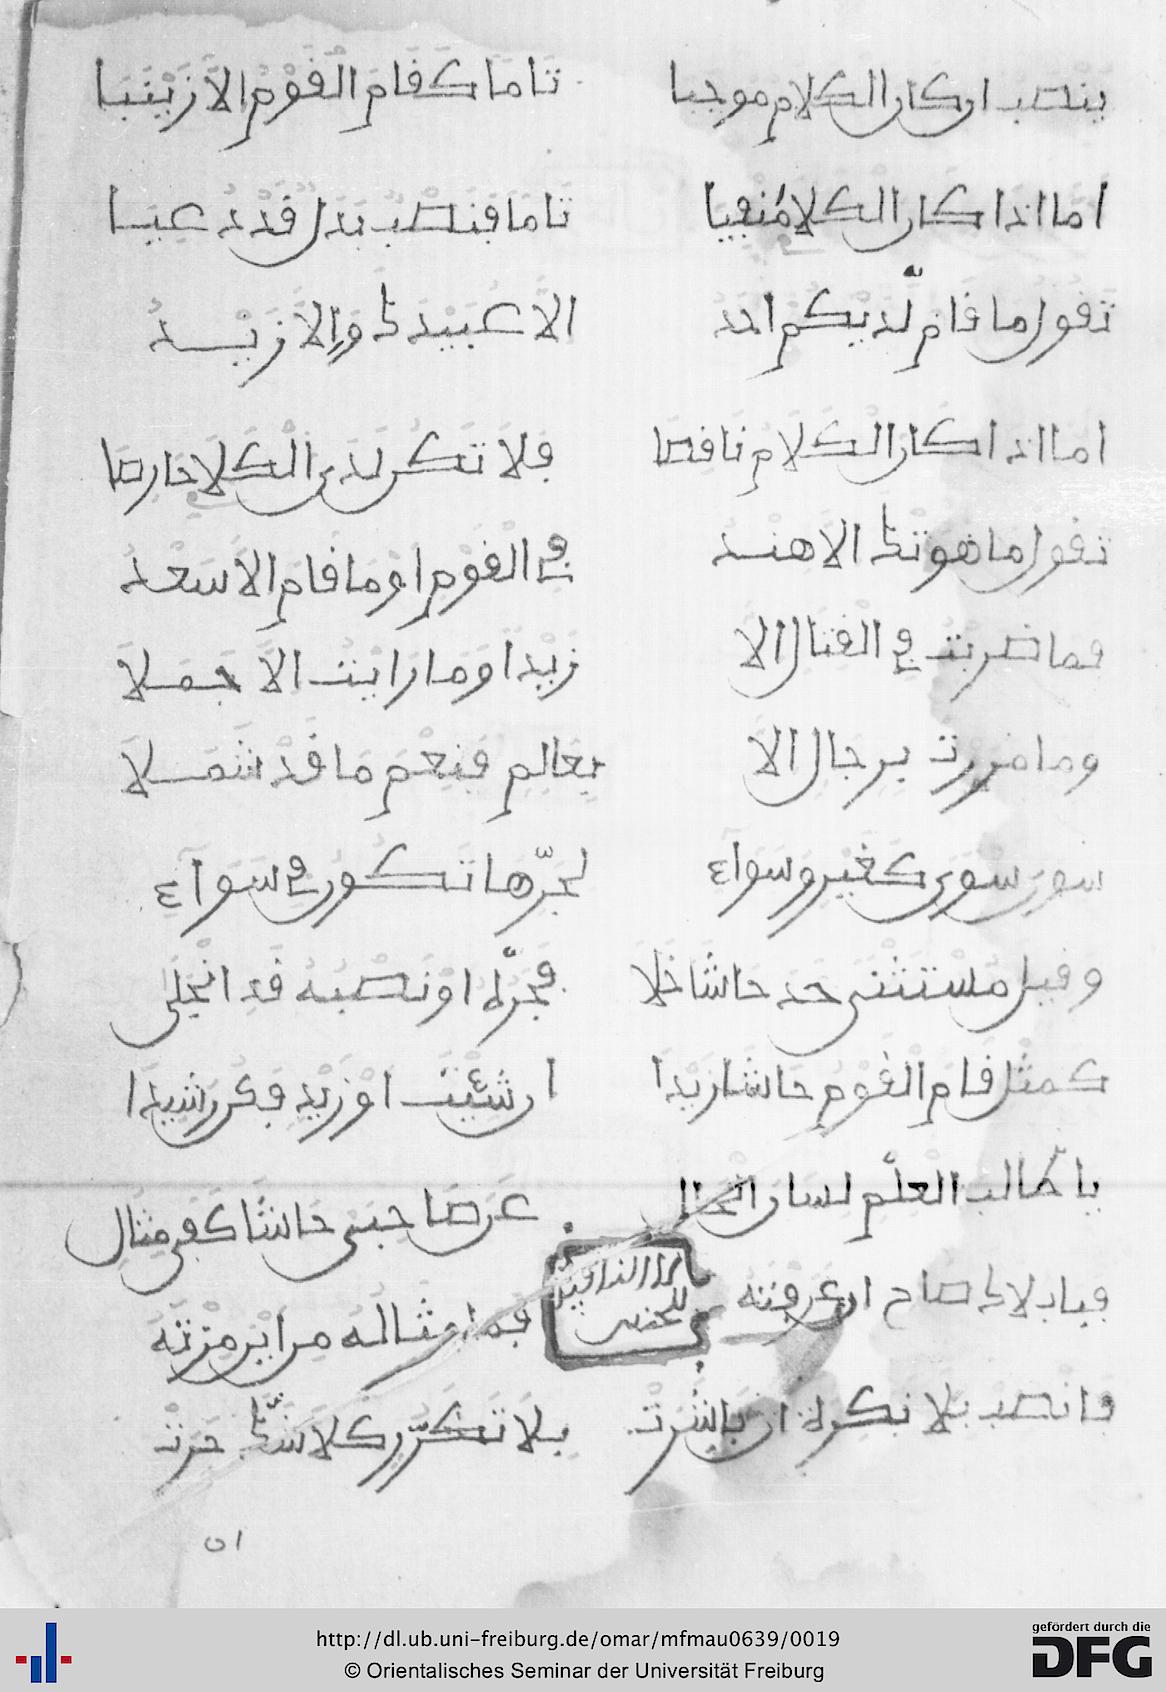 ينصب ان كان الكلام موجبا تاما كقام القوم الا زينبا
اما اذا كان الكلام منفيا تاما فنصب بدل قد عيبا
تقول ما قام لديكم احد الا عبيدة والا زيد
اما اذا كان الكلام ناقصا فلا تكن لدى الكلا حارصا
تقول ما هوت الا هند في القوم او ما قام الا سعد
فما ضربت في القتال الا زيدا وما رايت الا جملا
وما مررت برجال الا بعالم فنعم ما قد شملا
سوى سوى كغير وسواء لجرها تكون في سواء
وقبل مستثنى حد حاشا خلا فجره او نصبه قد انجلى
كمثل قام القوم حاشا زيدا ان شئت او زيد فكن رشيدا
يا طالب العلم لسان الحال عرضا حبى حاشا كفى مثال
باب لا النافية للجنس
فباب لا يا صاح ان عرفته فما مثاله من ابرمزته
فانصب بلا نكرة ان باشرت بلا تكرر كلا شك جرت
ا٥
http://dl.ub.uni-freiburg.de/omar/mfmau0639/0019
© Orientalisches Seminar der Universität Freiburg
gefördert durch die
DFG